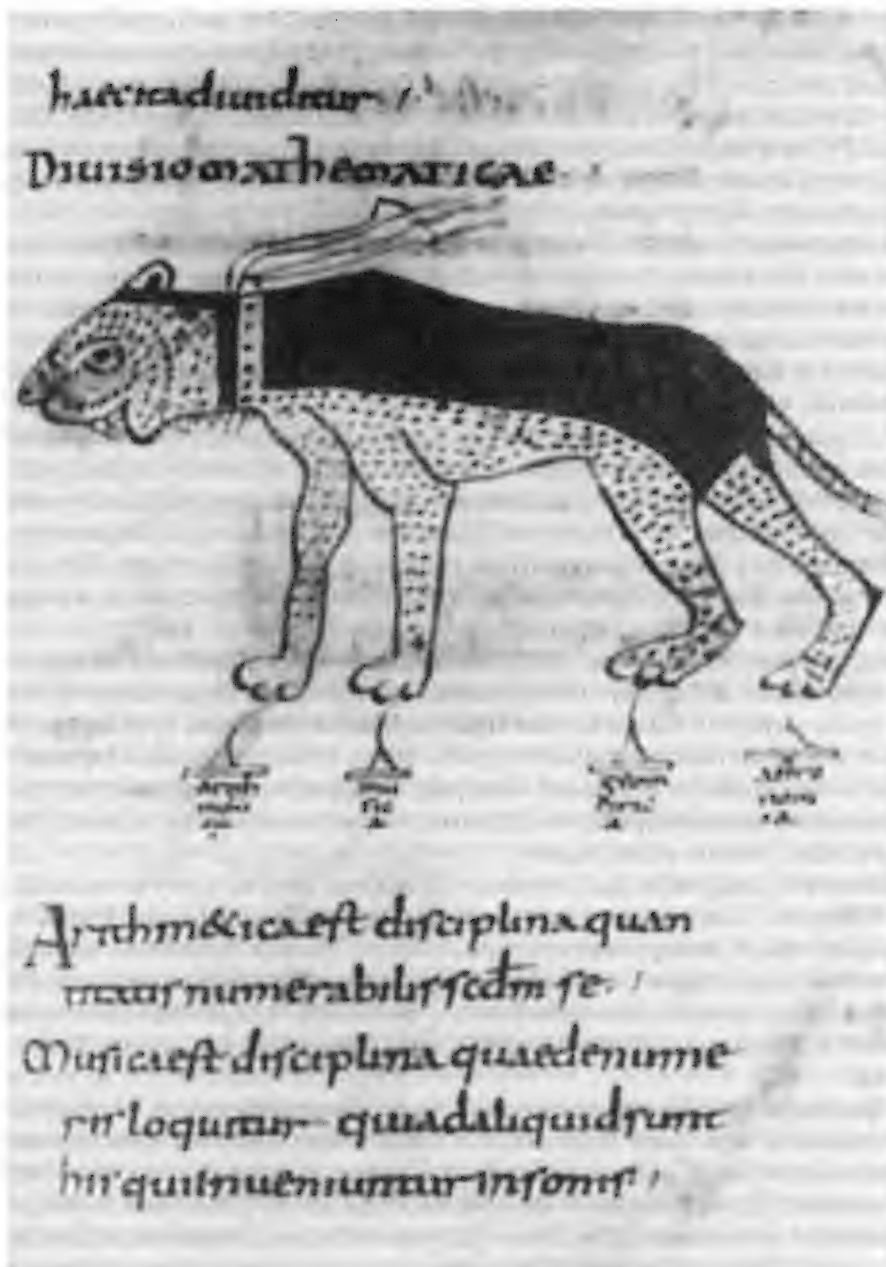 haec ita diuiditur
Diuisio mathematicae
Arithm&ica est disciplina quan
titatis numerabilis scdm se
Musica est disciplina quae de nume
ris loquitur qui ad aliquid sunt
his qui inueniuntur in sonis